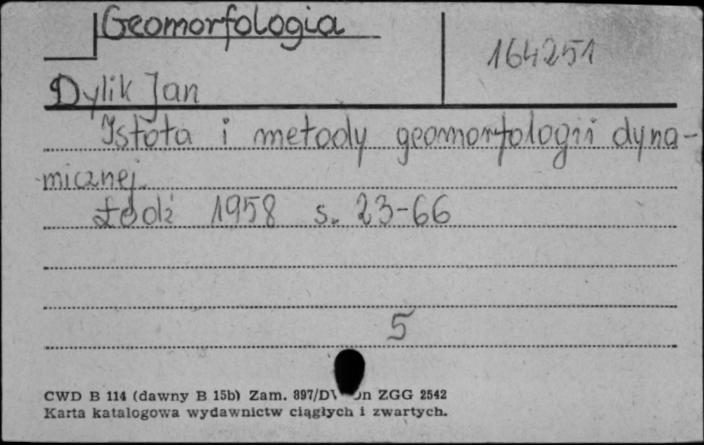 Geomorfologia
164251
Dylik Jan
Istota i metody geomorfologii dyna-
micznej.
Łódź 1958 s. 23-66
5
CWD B 114 (dawny B 15b) Zam. 897/D ZGG 2542
Karta katalogowa wydawnictw ciągłych i zwartych.